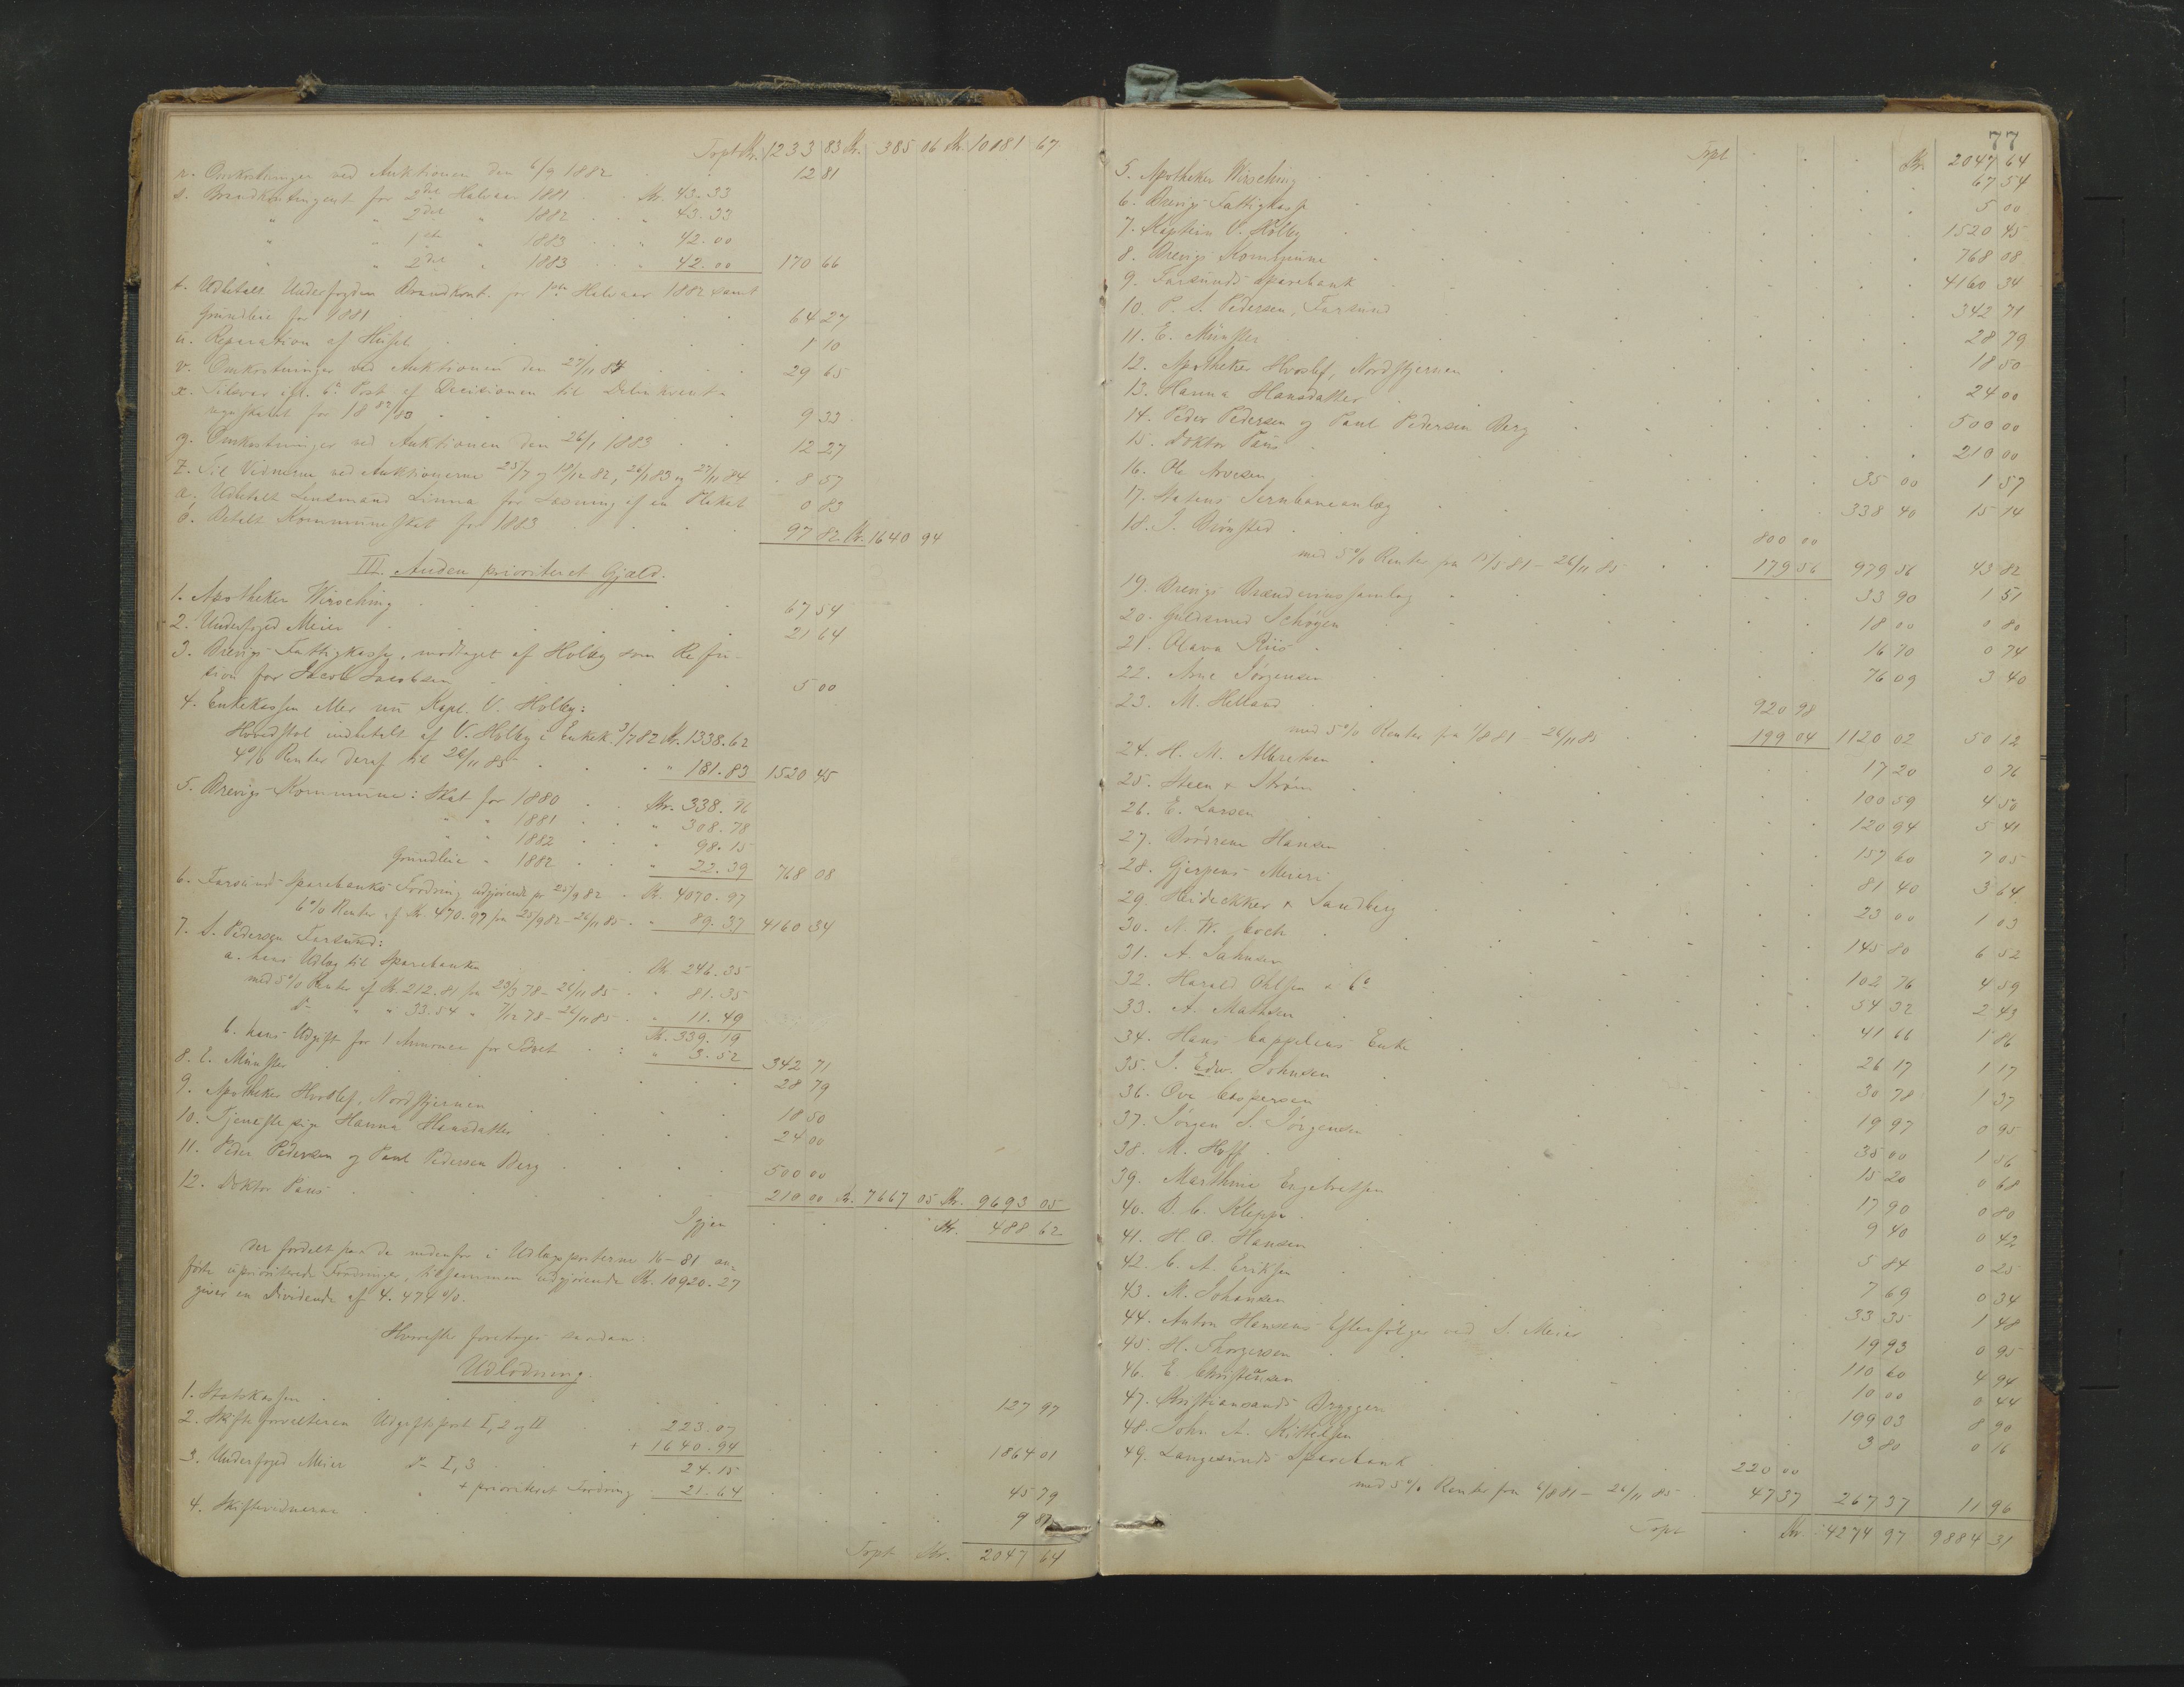 Trpt Kr. 1233 83 Kr. 385 06 Kr. 10181 67
r. Omkostninger ved Auktionen den 6/9 1882 . . 12 81
s. Brandkontingent for 2det Halvaar 1881 . . Kr. 43.33
" " 2det " 1882 . . " 43.33
" " 1ste " 1883 . . " 42.00
" " 2det " 1883 . . " 42.00 170 66
t. Udbetalt Underfogden Brandkont. for 1ste Halvaar 1882 samt
Grundleie for 1881 . . . 64 27
u. Reparation af Huset . . . 1 10
v. Omkostninger ved Auktionen den 27/11 84 . . 29 65
x. Tilsvar ifl. 6te Post af Decisionen til Debikvent-
regnskabet for 1882/83 . . . 9 33
y. Omkostninger ved Auktionen den 26/1 1883 . . 12 27
z. Til Vidnerne ved Auktionerne 25/7 og 18/12 82, 26/1 83 og 27/11 84 . 8 57
æ. Udbetalt Lensmand Linna for Læsning af en Plakat 0 83
ö. Betalt Kommuneskat for 1883 . . . 97 82 Kr. 1640 94
III. Anden prioriteret Gjæld.
1. Apotheker Wirsching . . . 67 54
2. Underfoged Meier . . . 21 64
3. Brevigs Fattigkasse, modtaget af Holby som Refu-
sion for Jacob Jacobsen . . . 5 00
4. Enkekassen eller nu Kapt. V. Holby:
Hovedstol indbetalt af V. Holby i Enkek. 3/7 82 Kr. 1338.62
4% Renter deraf til 26/11 85 . . . " 181.83 1520 45
5. Brevigs Kommune: Skat for 1880 . . Kr. 338.76
" " 1881 . . " 308.78
" " 1882 . . " 98.15
Grundleie " 1882 . . " 22.39 768 08
6. Farsunds Sparebanks Fordring udgjørende pr 25/9 82 . Kr. 4070.97
6% Renter af Kr. 470.97 fra 25/9 82 - 26/11 85 . " 89.37 4160 34
7. S. Pedersen Farsund:
a. hans Udlæg til Sparebanken . . . Kr. 246.35
med 5% Renter af Kr. 212.81 fra 23/3 78 - 26/11 85 . " 81.35
Do " " 33.54 " 7/12 78 - 26/11 85 . " 11.49
Kr. 339.19
b. hans Udgift for 1 Annonce for Boet . . : " 3.52 342 71
8. E. Münster . . . 28 79
9. Apotheker Hvoslef, Nordstjernen . . . 18 50
10. Tjenestepige Hanna Hansdatter . . . 24 00
11. Peder Pedersen og Paul Pedersen Berg . . . 500 00
12. Doktor Paus . . . 210 00 Kr. 7667 05 Kr. 9693 05
Igjen . . . Kr. 488 62
der fordelt paa de nedenfor i Udlægsposterne 16-81 an-
førte uprioriterede Fordringer, tilsammen udgjørende Kr. 10920.27
giver en Dividende af 4.474%.
Hvorefter foretoges saadan:
Udlodning.
1. Statskassen . . . 127 97
2. Skifteforvalteren Udgiftspost I, 2 og II . . 223.07
+ 1640.94 . . . 1864 01
3. Underfoged Meier Do I, 3 . . 24.15
" + prioriteret Fordring 21.64 . . . 45 79
4. Skiftevidnerne . . . 9 87
Trpt Kr. 2047 64
77
Trpt . . . Kr. 2047 64
5. Apotheker Wirsching . . . 67 54
6. Brevigs Fattigkasse . . . 5 00
7. Kaptein V. Holby . . . 1520 45
8. Brevigs Kommune . . . 768 08
9. Farsunds Sparebank . . . 4160 34
10. P. S. Pedersen, Farsund . . . 342 71
11. E. Münster . . . 28 79
12. Apotheker Hvoslef, Nordstjernen . . . 18 50
13. Hanna Hansdatter . . . 24 00
14. Peder Pedersen og Paul Pedersen Berg . . . 500 00
15. Doktor Paus . . . 210 00
16. Ole Arvesen . . . 35 00 1 57
17. Statens Jernbaneanlæg . . . 338 40 15 14
18. J. Brönsted . . . 800 00
med 5% Renter fra 15/5 81 - 26/11 85 . . 179 56 979 56 43 82
19. Brevigs Brændevinssamlag . . . 33 90 1 51
20. Guldsmed Schøyen . . . 18 00 0 80
21. Olava Riis . . . 16 70 0 74
22. Arne Jørgensen . . . 76 09 3 40
23. M. Helland . . . 920 98
med 5% Renter fra 1/8 81 - 26/11 85 . . 199 04 1120 02 50 12
24. H. M. Albretsen . . . 17 20 0 76
25. Steen & Strøm . . . 100 59 4 50
26. E. Larsen . . . 120 94 5 41
27. Brödrene Hansen . . . 157 60 7 05
28. Gjerpens Meieri . . . 81 40 3 64
29. Heideckker & Sandberg . . . 23 00 1 03
30. N. W. Coch . . . 145 80 6 52
31. A. Jahnsen . . . 102 76 4 59
32. Harald Ohlsen & Co . . . 54 32 2 43
33. A. Mathsen . . . 41 66 1 86
34. Hans Cappelens Enke . . . 26 17 1 17
35. J. Edw. Johnsen . . . 30 78 1 37
36. Ove Caspersen . . . 19 97 0 95
37. Jørgen S. Jørgensen . . . 35 00 1 56
38. M. Hoff . . . 15 20 0 68
39. Marthine Engebretsen . . . 17 90 0 80
40. B. C. Kleppe . . . 9 40 0 42
41. H. O. Hansen . . . 5 84 0 25
42. C. A. Eriksen . . . 7 69 0 34
43. M. Johansen . . . 33 35 1 48
44. Anton Hansens Efterfølger ved S. Meier . . . 19 93 0 95
45. H. Thorgersen . . . 110 60 4 94
46. E. Christensen . . . 10 00 0 44
47. Christiansands Bryggeri . . . 199 03 8 90
48. John A. Kittelsen . . . 3 80 0 16
49. Langesunds Sparebank . . . 220 00
med 5% Renter fra 6/8 81 - 26/11 85 . 47 37 267 37 11 96
Trpt . Kr. 4274 97 9884 31